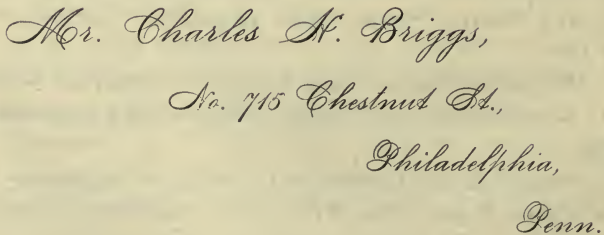 Mr. Charles H. Briggs,
No. 715 Chestnut St.,
Philadelphia,
Penn.